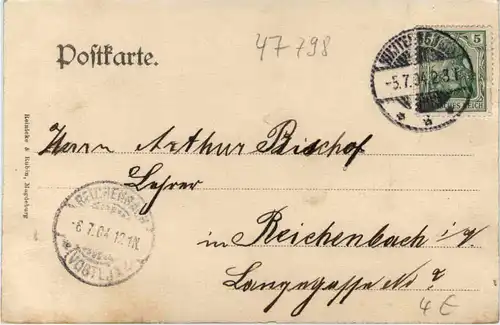 47-798
Postkarte.
5
-5.7.04.2-3
REICH
Reinicke & Rubin, Magdeburg
Herrn Arthur Bischof
Lehrer
REICHENBACH
-6.7.04.12
(VOGTL.)
in Reichenbach i. V.
Langegasse No 7
4 €